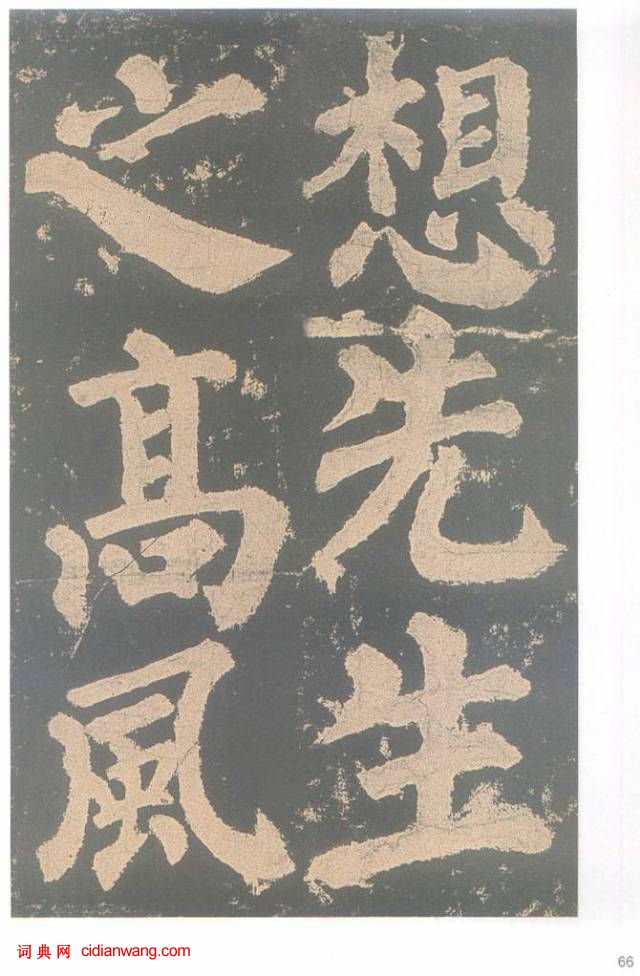 想先生
之高風
词典网 cidianwang.com
66